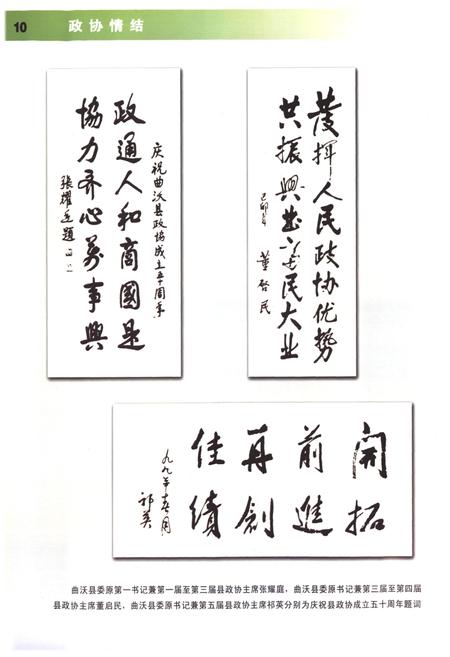 10 政协情结
庆祝曲沃县政协成立五十周年
政通人和商國是
協力齐心萬事興
張耀庭題
發揮人民政协优势
共振興民大业
己卯春 董啓民
開拓
前進
再創
佳績
九九年
祁英
曲沃县委原第一书记兼第一届至第三届县政协主席张耀庭，曲沃县委原书记兼第三届至第四届
县政协主席董启民，曲沃县委原书记兼第五届县政协主席祁英分别为庆祝县政协成立五十周年题词